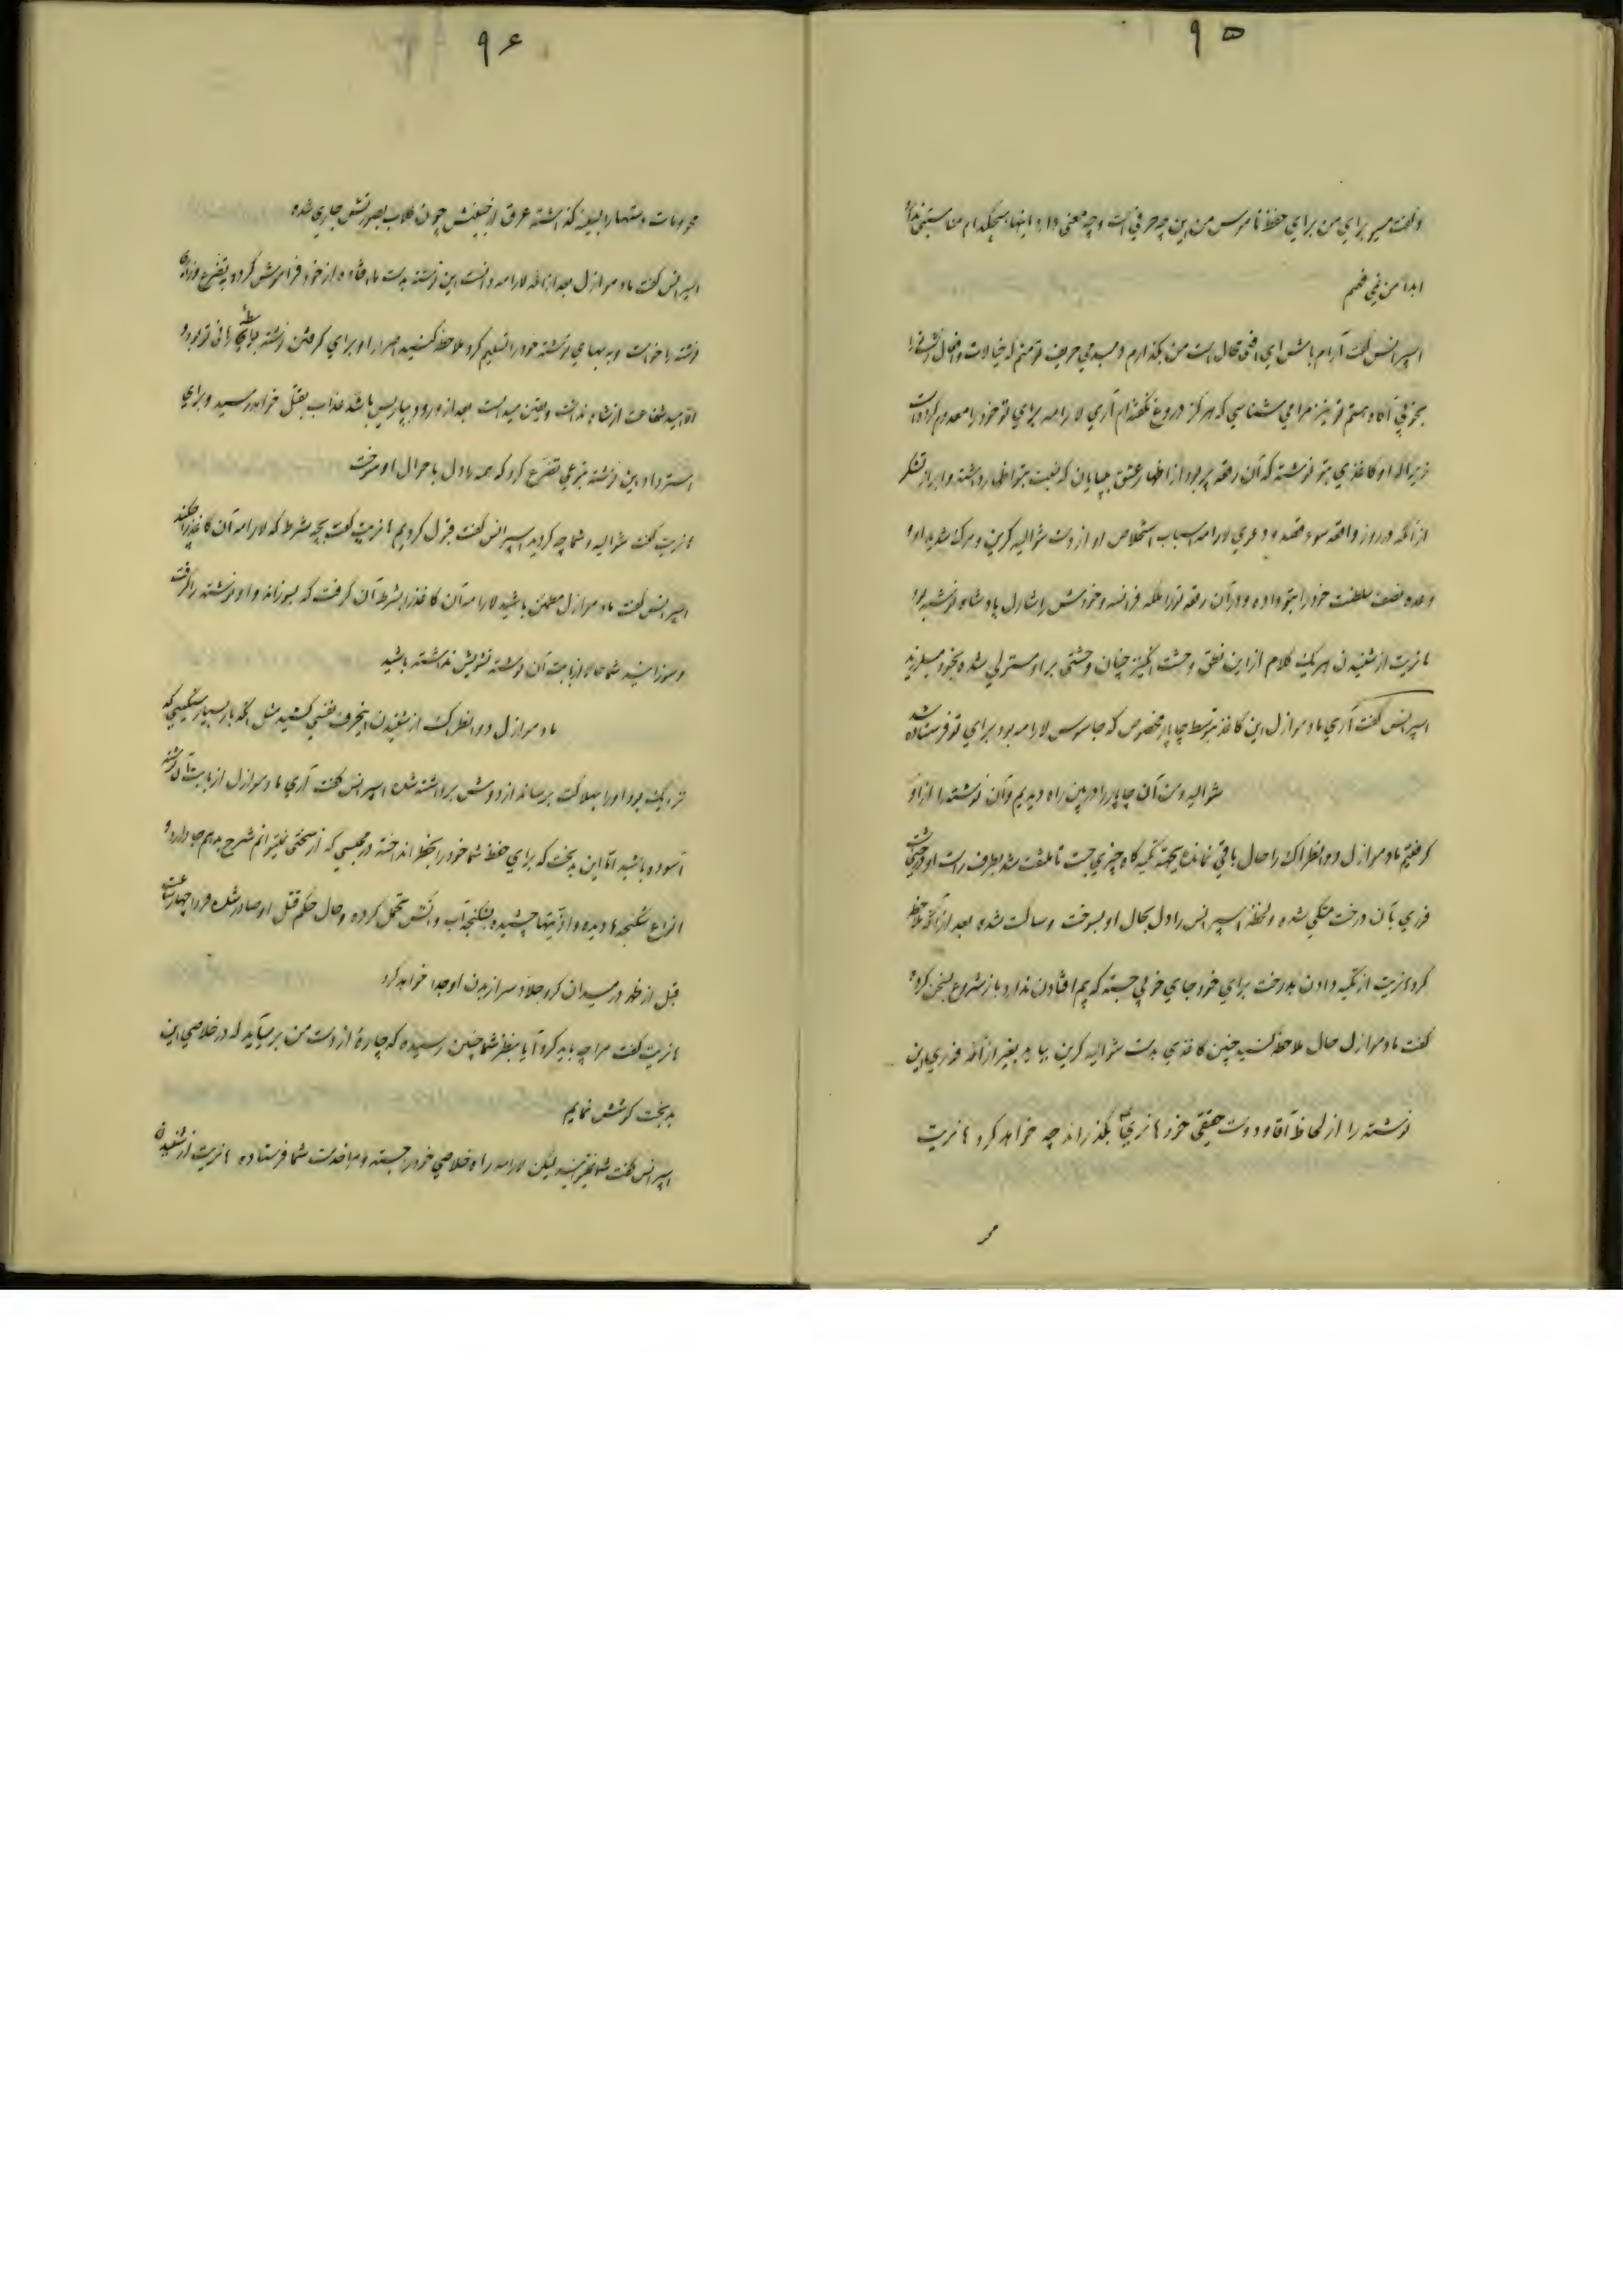 ۹۵
و گفت میبر برای من برای حفظ ناموس من این چه حرفی است و چه معنی دارد اینها هیچکدام مناسبتی ندارد
ابداً من نمی فهم
اسپرانس گفت آرام باش ای محال است من بگذارم حریف تو منم که خیالات
بخوبی آگاه هستم تو نیز مرا می شناسی که هرگز دروغ نگفته‌ام آری لارامه برای تو خود را معدوم کرده است
زیرا که او کاغذی بتو نوشته که آن رقعه پر بود از اظهار عشق بی پایان که نسبت بتو اظهار داشته و ابراز تشکر
از آنکه در روز واقعه سوء قصد و دعوی لارامه اسباب استخلاص او از دست شوالیه کرین و مرگ شدید او
وعده نصف سلطنت خود را بتو داده و در آن رقعه تو را ملکه فرانسه و خودش را شارل پادشاه نوشته بود
هانریت از شنیدن هر یک کلام از این نطق وحشت انگیز چنان وحشتی بر او مستولی شده بخود میلرزید
اسپرانس گفت آری مادموازل این کاغذ بتوسط چاپار مخصوص که جاسوس لارامه بود برای تو فرستاده شد
شوالیه و من آن چاپار را در بین راه دیدیم و آن نوشته را از او
گرفتیم مادموازل دو انطراک را حال باقی نمانده بجهة تکیه گاه چیزی جست تا ملتفت شد بطرف راست او درختی است
فوری بآن درخت متکی شده و لحظه اسپرانس را دل بحال او بسوخت و ساکت شده بعد از آنکه ملاحظه
کرد هانریت از تکیه دادن بدرخت برای خود جای خوبی جسته که بیم افتادن ندارد باز شروع بسخن کرده
گفت مادموازل حال ملاحظه کنید چنین کاغذی بدست شوالیه کرین بیاید بغیر از آنکه فوری این
نوشته را از لحاظ آقا و دوست حقیقی خود هانری ۴ بگذراند چه خواهد کرد هانریت
۹۶
گذاشته عرق از چون گلاب بصورتش جاری شده
اسپرانس گفت مادموازل بعد از آنکه لارامه دانست این نوشته بدست ما افتاده از خود فراموش کرده به تضرع و زاری
نوشته را خواست و به بهای نوشته خود را تسلیم کرد ملاحظه کنید اصرار او برای گرفتن نوشته
امید شفاعت از شاه نداشت و یقین میدانست بعد از ورود بپاریس با شد عذاب بقتل خواهد رسید و برای
استرداد این نوشته بنوعی تضرع کرد که همه را دل باحوال او سوخت
هانریت گفت شوالیه و شما چه کردید اسپرانس گفت قبول کردیم هانریت گفت بچه شرط که لارامه آن کاغذ را چکند
اسپرانس گفت مادموازل مطمئن باشید لارامه آن کاغذ را بشرط آن گرفت که بسوزاند و او نوشته را گرفت
و سوزانید شما از بابت آن نوشته تشویش نداشته باشید
مادموازل دو انطراک از شنیدن اینحرف نفسی کشید مثل آنکه بار بسیار سنگینی که
نزدیک بود او را بهلاکت برساند از دوشش برداشته شده اسپرانس گفت آری مادموازل از بابت آن نوشته
آسوده باشید اما این بدبخت که برای حفظ شما خود را بخطر انداخته در محبسی که از سختی نمیتوانم شرح بدهم جا دارد و
انواع شکنجه ها دیده و اذیتها چشیده شکنجه آب و آتش تحمل کرده و حال حکم قتل او صادر شده فردا چهار ساعت
قبل از ظهر در میدان کرو جلاد سر از بدن او جدا خواهد کرد
هانریت گفت مرا چه باید کرد آیا بنظر شما چنین رسیده که چارهٔ از دست من برمیآید که در خلاصی این
بدبخت کوشش نمایم
اسپرانس گفت شما نمیتوانید لیکن لارامه راه خلاصی خود را جسته و مرا خدمت شما فرستاده هانریت از شنیدن